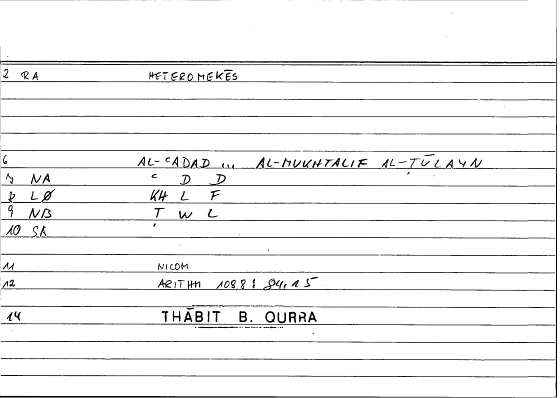 2 RA HETEROMEKĒS
6 AL-ʿADAD ... AL-MUKHTALIF AL-ṬŪLAYN
7 NA ʿ D D
8 LØ KH L F
9 NB Ṭ W L
10 SK
11 NICOM
12 ARITHM 108,8 : 84,15
14 THĀBIT B. QURRA